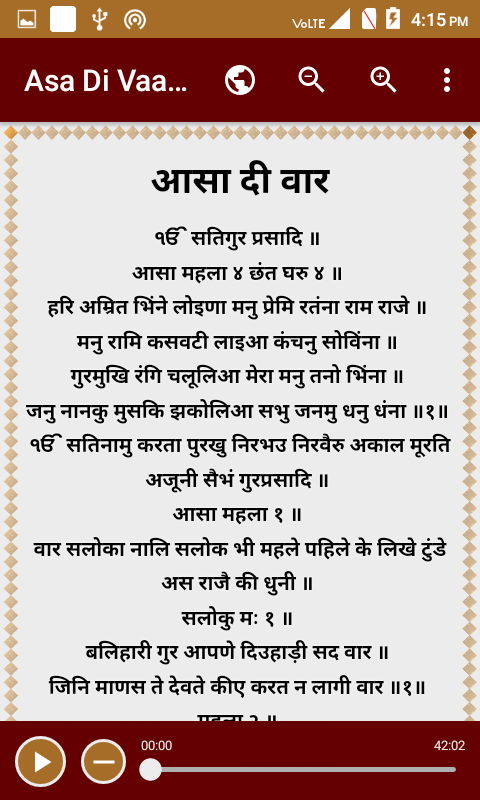 VoLTE 4:15 PM
Asa Di Vaa...
आसा दी वार
ੴ सतिगुर प्रसादि ॥
आसा महला ४ छंत घरु ४ ॥
हरि अम्रित भिंने लोइणा मनु प्रेमि रतंना राम राजे ॥
मनु रामि कसवटी लाइआ कंचनु सोविंना ॥
गुरमुखि रंगि चलूलिआ मेरा मनु तनो भिंना ॥
जनु नानकु मुसकि झकोलिआ सभु जनमु धनु धंना ॥१॥
ੴ सतिनामु करता पुरखु निरभउ निरवैरु अकाल मूरति
अजूनी सैभं गुरप्रसादि ॥
आसा महला १ ॥
वार सलोका नालि सलोक भी महले पहिले के लिखे टुंडे
अस राजै की धुनी ॥
सलोकु मः १ ॥
बलिहारी गुर आपणे दिउहाड़ी सद वार ॥
जिनि माणस ते देवते कीए करत न लागी वार ॥१॥
महला २ ॥
00:00 42:02